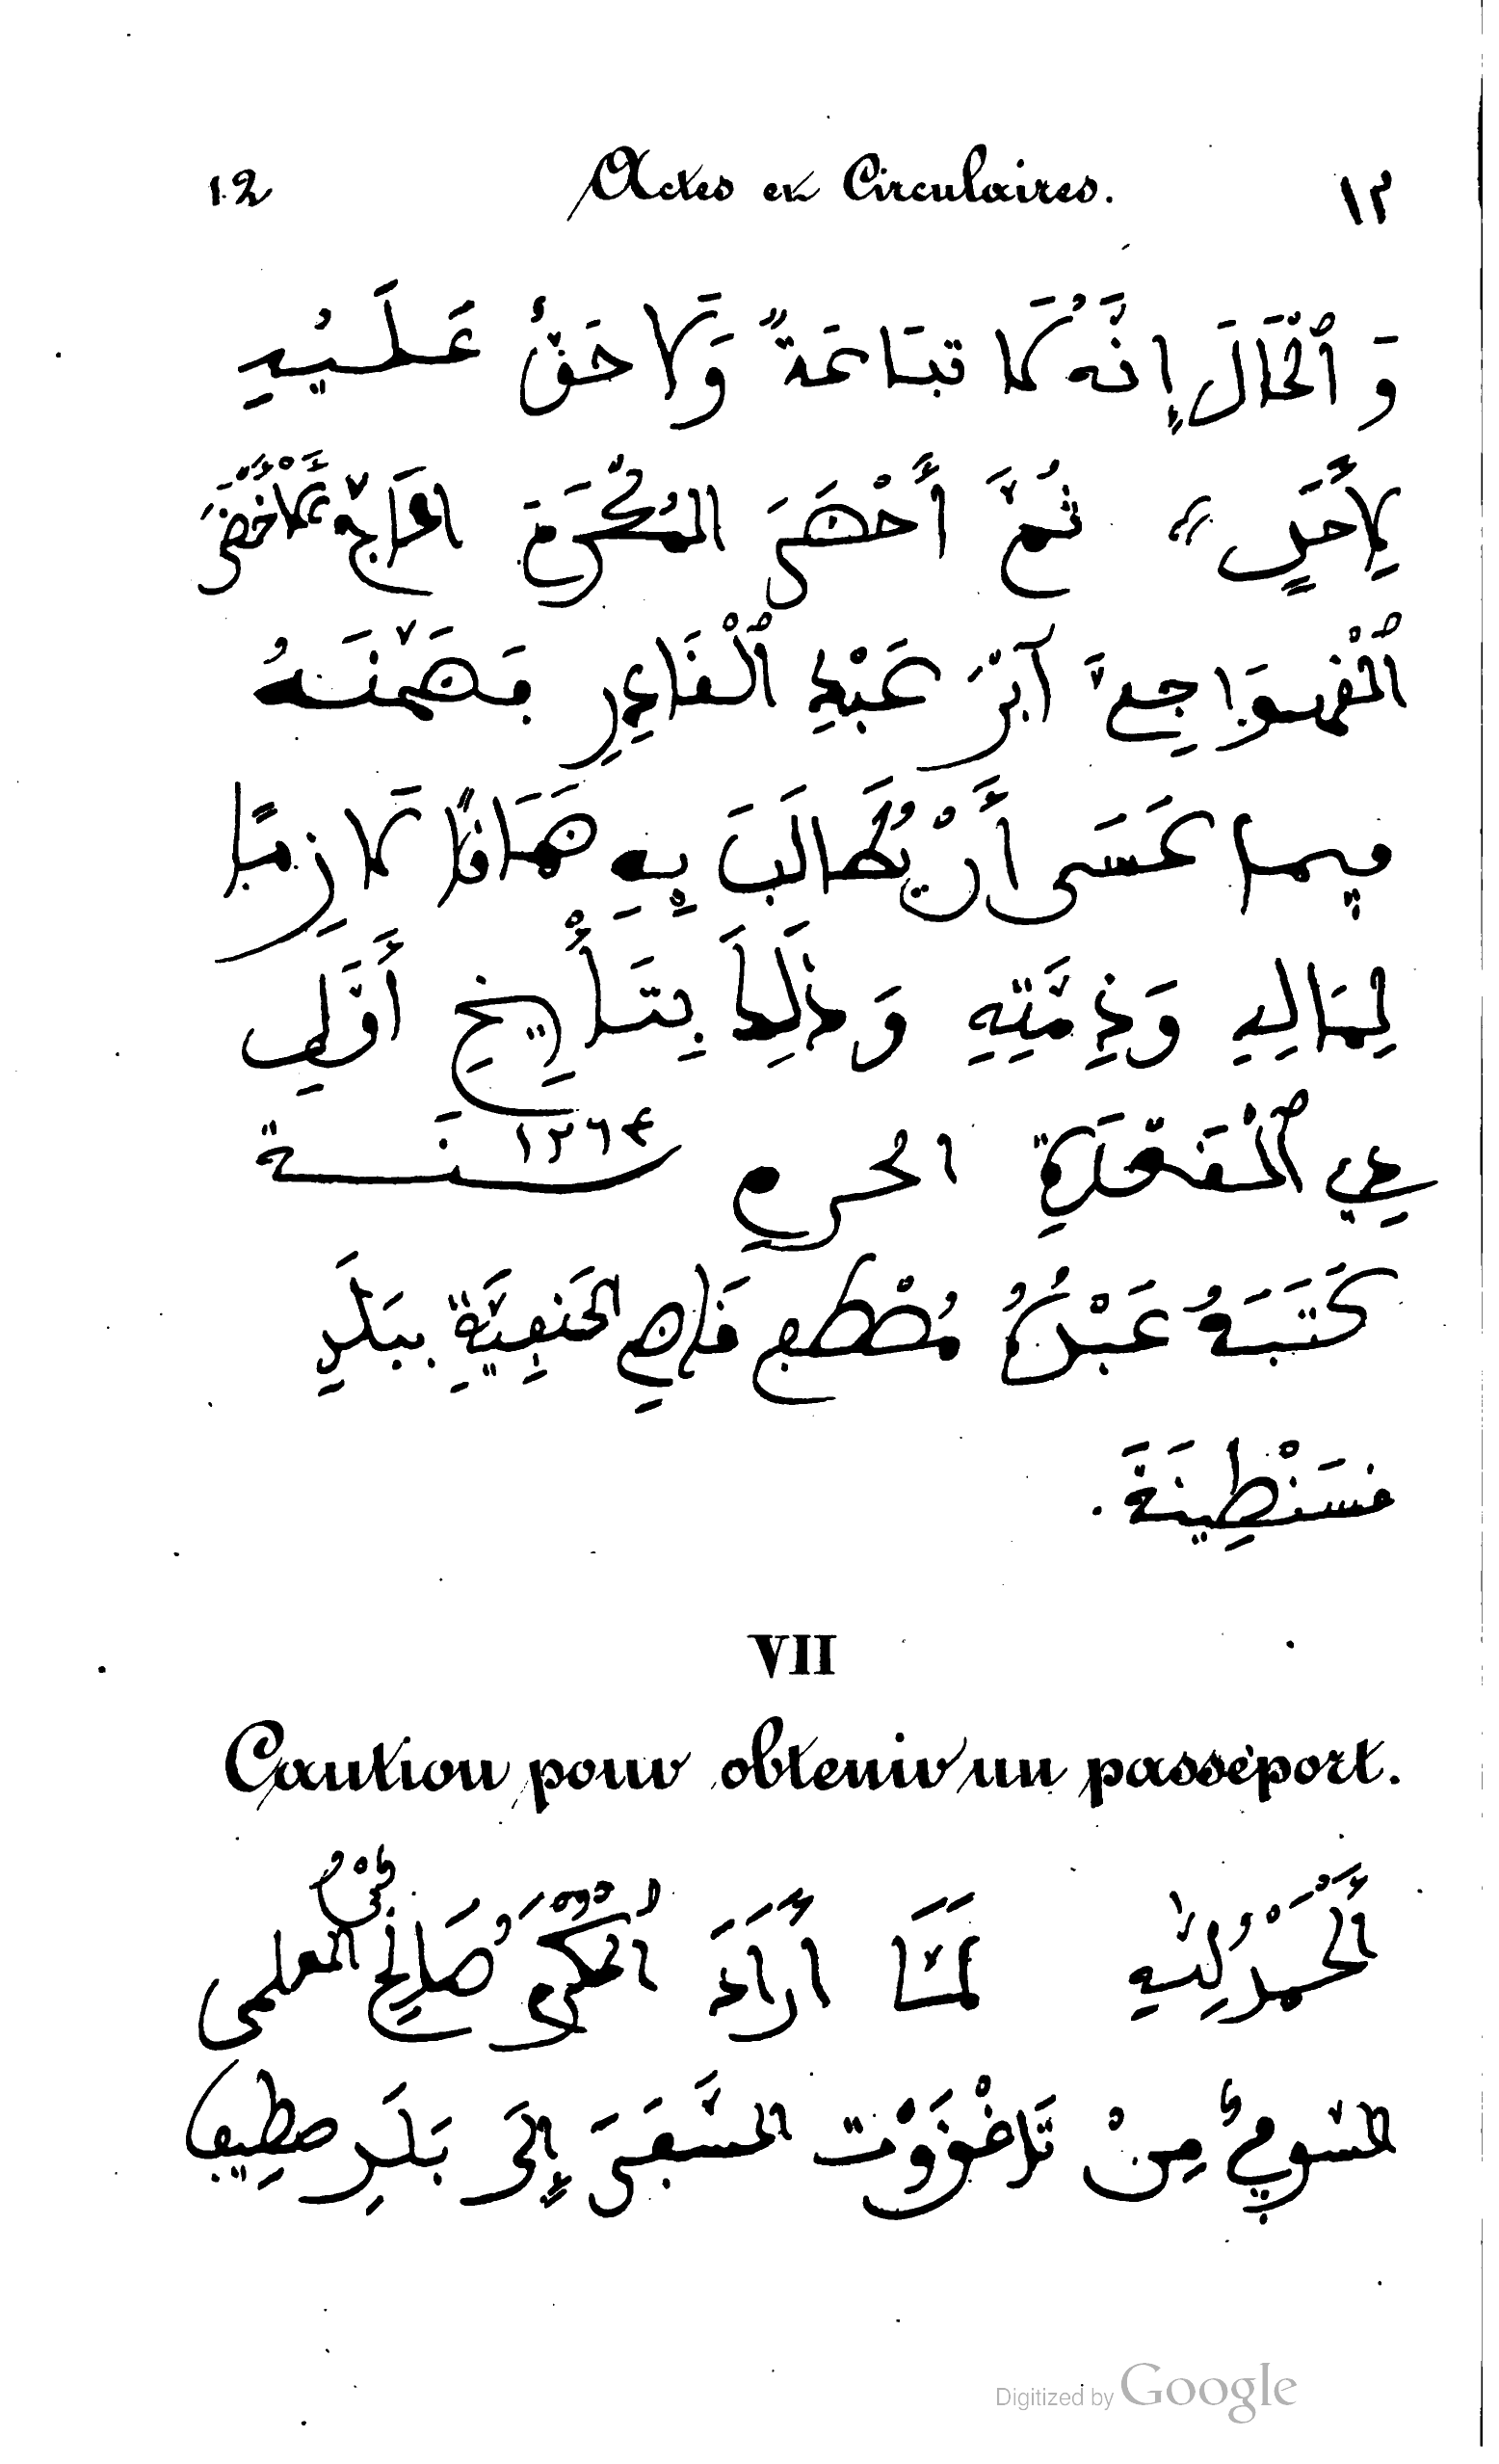 12 Actes et Circulaires. ١٢
وَٱلْحَالَ إِنَّهُ لَا تباعَةً وَلَا حَقَّ عَلَيْهِ
لِأَحَدٍ » ثُمَّ أَحْضَرَ المُحْرَمَ الحَاجَّ لَخْضَرَ
ٱلْفسوَاجِيَّ آبْنَ عَبْدِ ٱلْقَادِرِ فَضَمَّنَهُ
فِيما عَسَى أَنْ يُطَالَبَ بِهِ ضَمَانًا لَازِمًا
لِمَالِهِ وَذِمَّتِهِ وَذَلِكَ بِتَأْرِيخِ أَوَّلِ
ذِي ٱلْقَعْدَةِ الحرم سنة ١٢٦٤
كَتَبَهُ عَبْدُهُ مُصْطفى قَاضِي الحَنَفِيَّةِ بِبَلَدِ
قسَنْطِينَةَ.
VII
Caution pour obtenir un passeport.
أَلْحَمْدُ لِلهِ لَمَّا أَرَادَ ٱلْمُكَرَّمُ صَالِحُ بْنُ المعلمى
السُّوفِيُّ مِنْ تَاغْزُوْت السَّفَرَ إِلَى بَلَدِ صطِيف
Digitized by Google